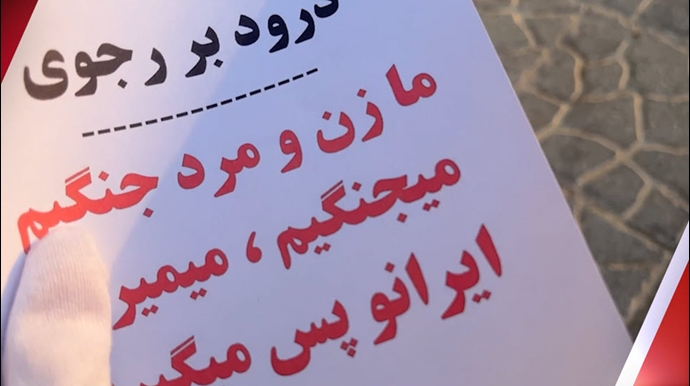 درود بر رجوی
ما زن و مرد جنگیم
میجنگیم ، میمیر
ایرانو پس میگی